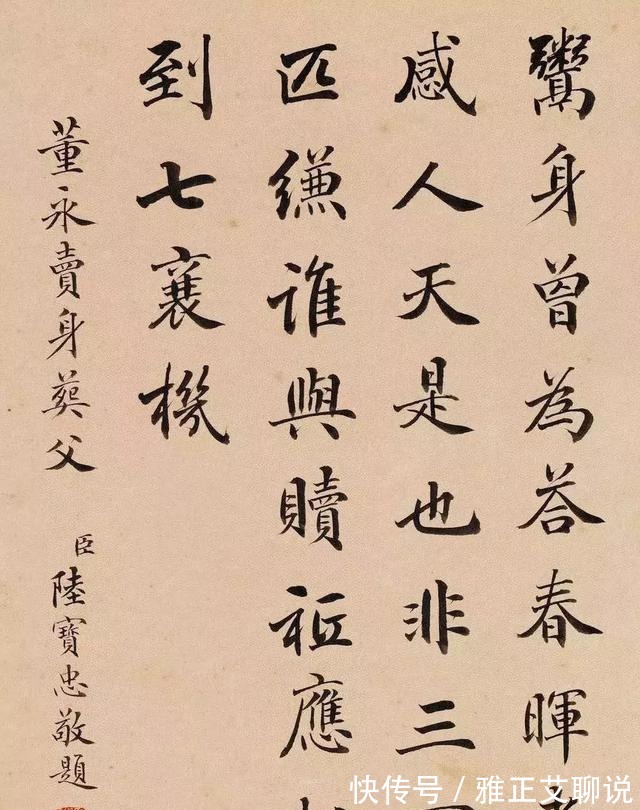 鬻身曾為答春暉
感人天是也非三
匹縑誰與贖祗應
到七襄機
董永賣身葬父
臣陸寶忠敬題
快传号／雅正艾聊说